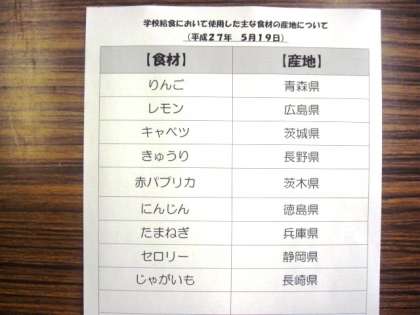 学校給食において使用した主な食材の産地について
（平成２７年　５月１９日）
【食材】　【産地】
りんご　青森県
レモン　広島県
キャベツ　茨城県
きゅうり　長野県
赤パプリカ　茨木県
にんじん　徳島県
たまねぎ　兵庫県
セロリー　静岡県
じゃがいも　長崎県